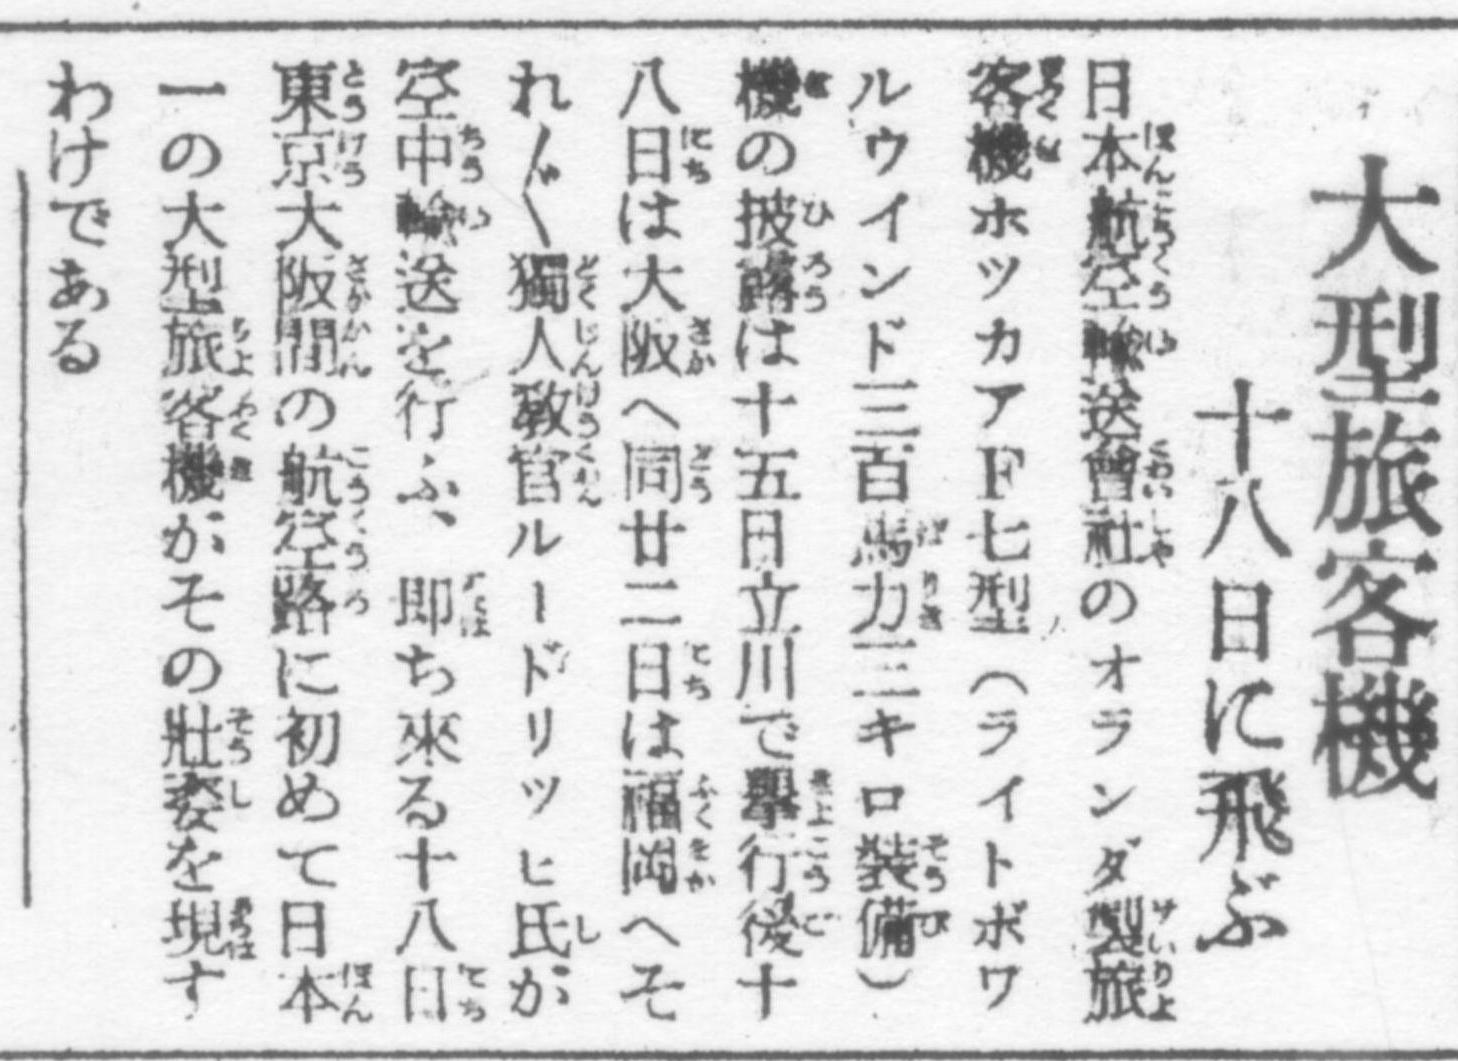 大型旅客機
十八日に飛ぶ
日本航空輸送會社のオランダ製旅
客機ホツカアF七型（ライトボワ
ルウインド三百馬力三キロ装備）
機の披露は十五日立川で擧行後十
八日は大阪へ同廿二日は福岡へそ
れ／″＼獨人教官ルードドリツヒ氏が
空中輸送を行ふ、即ち來る十八日
東京大阪間の航空路に初めて日本
一の大型旅客機がその壯姿を現す
わけである